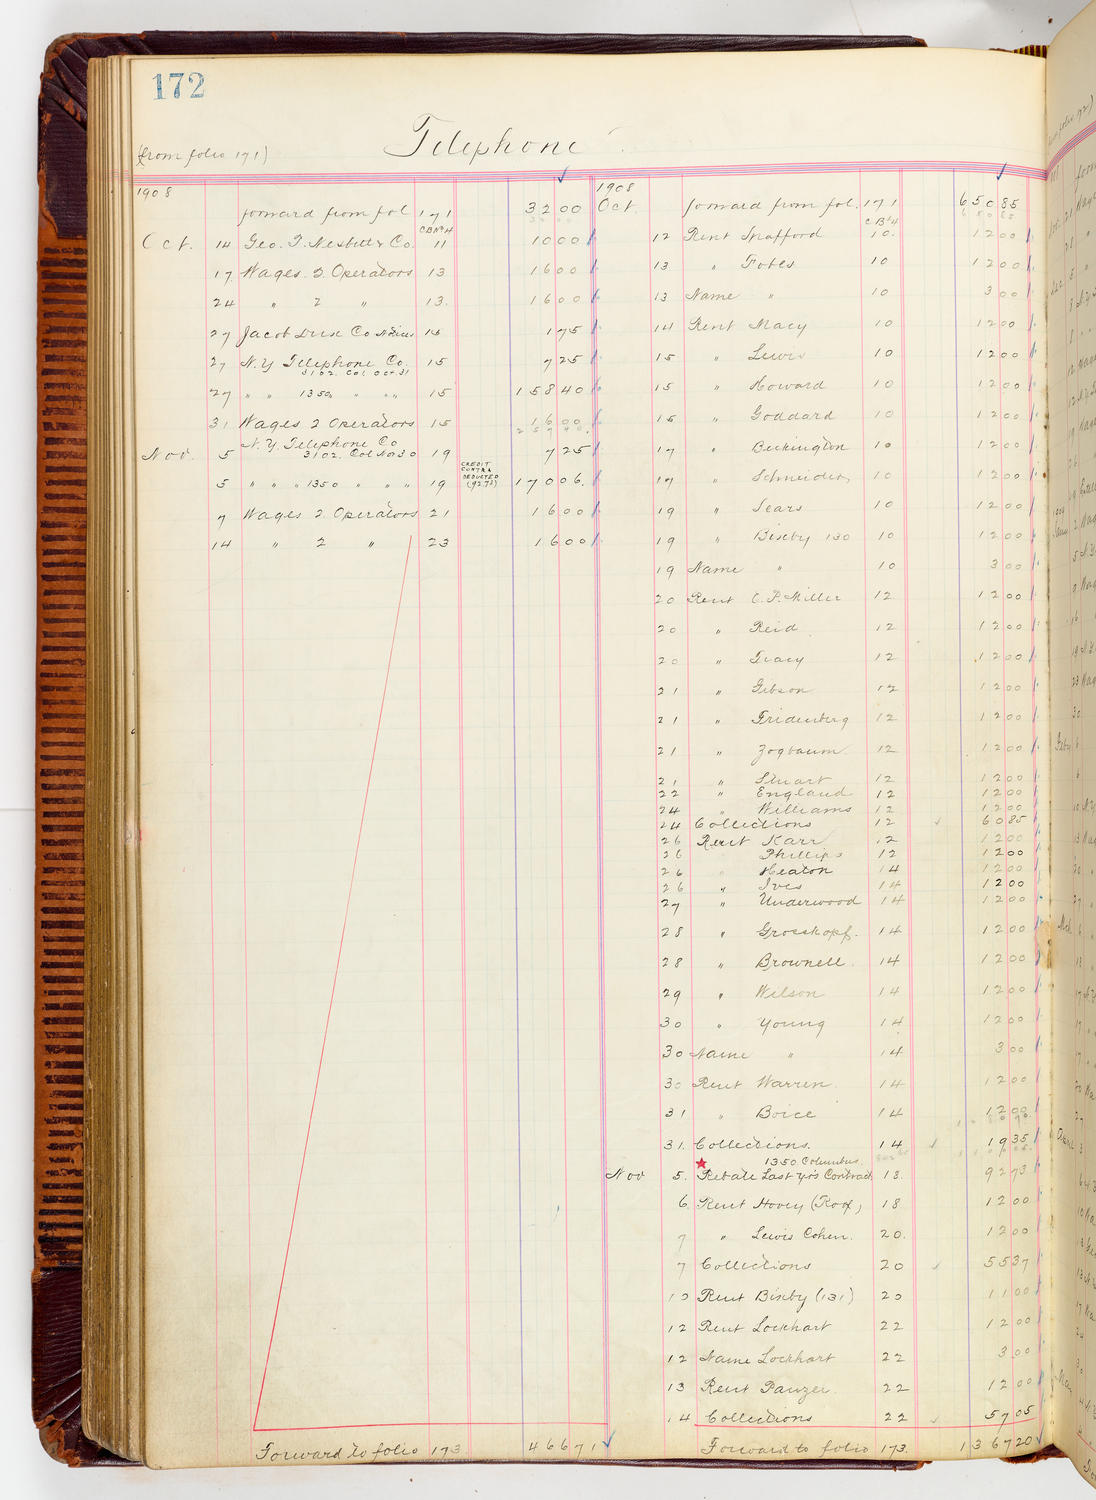 172
Telephone
(from folio 171)
1908
forward from fol 171 3200
CB No 4
Oct. 14 Geo. T. Nesbitt & Co. 11 1000
17 Wages 2 Operators 13 1600
24 " 2 " 13. 1600
27 Jacob Co 15 175
27 N.Y Telephone Co. 15 725
3102. Col. Oct 31
27 " " 1350 " " " 15 15840
31 Wages 2 Operators 15 1600
N.Y. Telephone Co
Nov. 5 3102. Col Nov 30 19 725
CREDIT
CONTRA
DEDUCTED
(92.73)
5 " " " 1350 " " " 19 17006.
7 Wages 2 Operators 21 1600
14 " 2 " 23 1600
Forward to folio 173. 46671
1908
Oct. forward from fol. 171 65085
CB No 4
12 Rent Spafford 10. 1200
13 " Fobes 10 1200
13 Name " 10 300
14 Rent Macy 10 1200
15 " Lewis 10 1200
15 " Howard 10 1200
15 " Goddard 10 1200
17 " Beckington 10 1200
17 " Schneider 10 1200
19 " Sears 10 1200
19 " Bixby 130 10 1200
19 Name " 10 300
20 Rent C.P. Miller 12 1200
20 " Reid 12 1200
20 " Tracy 12 1200
21 " Gibson 12 1200
21 " Fridenberg 12 1200
21 " Zogbaum. 12 1200
21 " Stuart 12 1200
22 " England 12 1200
24 " Williams 12 1200
24 Collections 12 6085
26 Rent Karr 12 1200
26 " Phillips 12 1200
26 " Heaton 14 1200
26 " Ives 14 1200
27 " Underwood 14 1200
28 " Grosskopf. 14 1200
28 " Brownell. 14 1200
29 " Wilson 14 1200
30 " Young 14 1200
30 Name " 14 300
30 Rent Warren. 14 1200
31 " Boice 14 1200
31. Collections. 14 1935
1350 Columbus.
Nov 5. Rebate Last yr's Contract 18. 9273
6. Rent Hovey (Roof) 18 1200
7 " Lewis Cohen. 20. 1200
7 Collections 20 5537
10 Rent Bixby (131) 20 1100
12 Rent Lockhart 22 1200
12 Name Lockhart 22 300
13 Rent Panzer 22 1200
14 Collections 22 5705
Forward to folio 173. 136720